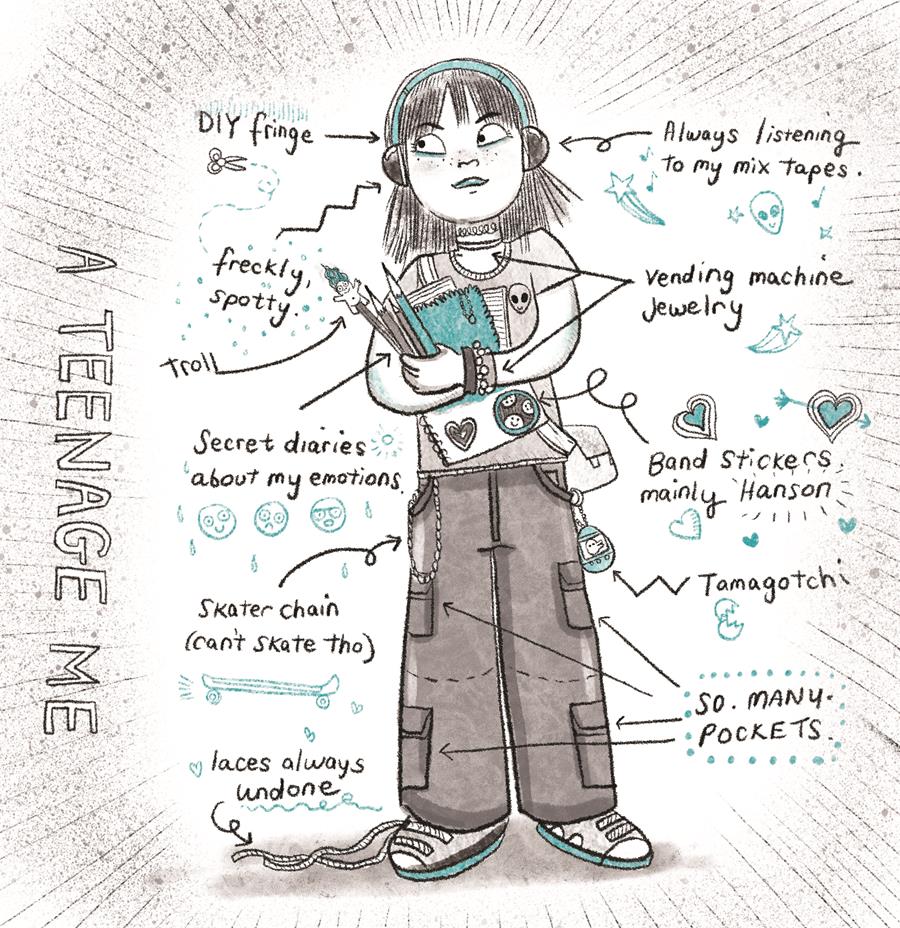 A TEENAGE ME
DIY fringe
Always listening
to my mix tapes.
freckly,
spotty.
vending machine
Jewelry
Troll
Secret diaries
about my emotions.
Band Stickers,
mainly Hanson
Skater chain
(can't skate tho)
Tamagotchi
SO. MANY.
POCKETS.
laces always
undone